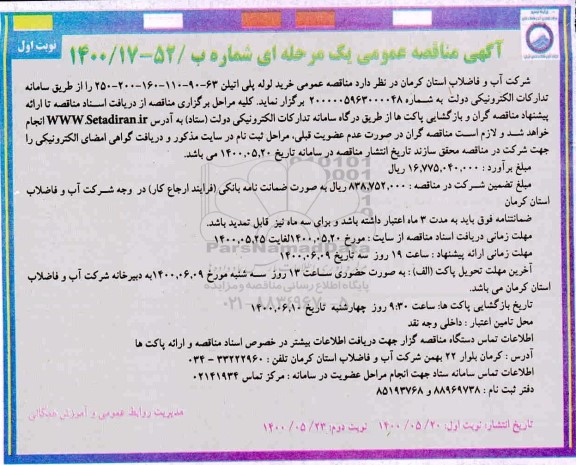 نوبت اول
آگهی مناقصه عمومی یک مرحله ای شماره ب /۵۲-۱۴۰۰/۱۷
شرکت آب و فاضلاب استان کرمان در نظر دارد مناقصه عمومی خرید لوله پلی اتیلن ۶۳-۹۰-۱۱۰-۱۶۰-۲۰۰-۲۵۰ را از طریق سامانه
تدارکات الکترونیکی دولت به شماره ۲۰۰۰۰۰۵۹۶۳۰۰۰۰۴۸ برگزار نماید. کلیه مراحل برگزاری مناقصه از دریافت اسناد مناقصه تا ارائه
پیشنهاد مناقصه گران و بازگشایی پاکت ها از طریق درگاه سامانه تدارکات الکترونیکی دولت (ستاد) به آدرس WWW.Setadiran.ir انجام
خواهد شد و لازم است مناقصه گران در صورت عدم عضویت قبلی، مراحل ثبت نام در سایت مذکور و دریافت گواهی امضای الکترونیکی را
جهت شرکت در مناقصه محقق سازند تاریخ انتشار مناقصه در سامانه تاریخ ۱۴۰۰.۰۵.۲۰ می باشد.
مبلغ برآورد : ۱۶,۷۷۵,۰۴۰,۰۰۰ ریال
مبلغ تضمین شرکت در مناقصه : ۸۳۸,۷۵۲,۰۰۰ ریال به صورت ضمانت نامه بانکی (فرایند ارجاع کار) در وجه شرکت آب و فاضلاب
استان کرمان
ضمانتنامه فوق باید به مدت ۳ ماه اعتبار داشته باشد و برای سه ماه نیز قابل تمدید باشد.
مهلت زمانی دریافت اسناد مناقصه از سایت : مورخ ۱۴۰۰.۰۵.۲۰لغایت ۱۴۰۰.۰۵.۲۵
مهلت زمانی ارائه پیشنهاد : ساعت ۱۹ روز سه تاریخ ۱۴۰۰.۰۶.۰۹
آخرین مهلت تحویل پاکت (الف) : به صورت حضوری ساعت ۱۳ روز سه شنبه مورخ ۱۴۰۰.۰۶.۰۹به دبیرخانه شرکت آب و فاضلاب
استان کرمان می باشد.
تاریخ بازگشایی پاکت ها: ساعت ۹:۳۰ روز چهارشنبه تاریخ ۱۴۰۰.۰۶.۱۰
محل تامین اعتبار : داخلی وجه نقد
اطلاعات تماس دستگاه مناقصه گزار جهت دریافت اطلاعات بیشتر در خصوص اسناد مناقصه و ارائه پاکت ها
آدرس : کرمان بلوار ۲۲ بهمن شرکت آب و فاضلاب استان کرمان تلفن : ۳۳۲۲۲۹۶۰ - ۰۳۴
اطلاعات تماس سامانه ستاد جهت انجام مراحل عضویت در سامانه : مرکز تماس ۰۲۱۴۱۹۳۴
دفتر ثبت نام : ۸۸۹۶۹۷۳۸ و ۸۵۱۹۳۷۶۸
مدیریت روابط عمومی و آموزش همگانی
تاریخ انتشار: نوبت اول: ۲۰/ ۰۵/ ۱۴۰۰ نوبت دوم: ۲۳/ ۰۵/ ۱۴۰۰
ParsNamadData
پایگاه اطلاع رسانی مناقصه و مزایده
۰۲۱-۸۸۳۴۹۶۷۰-۵